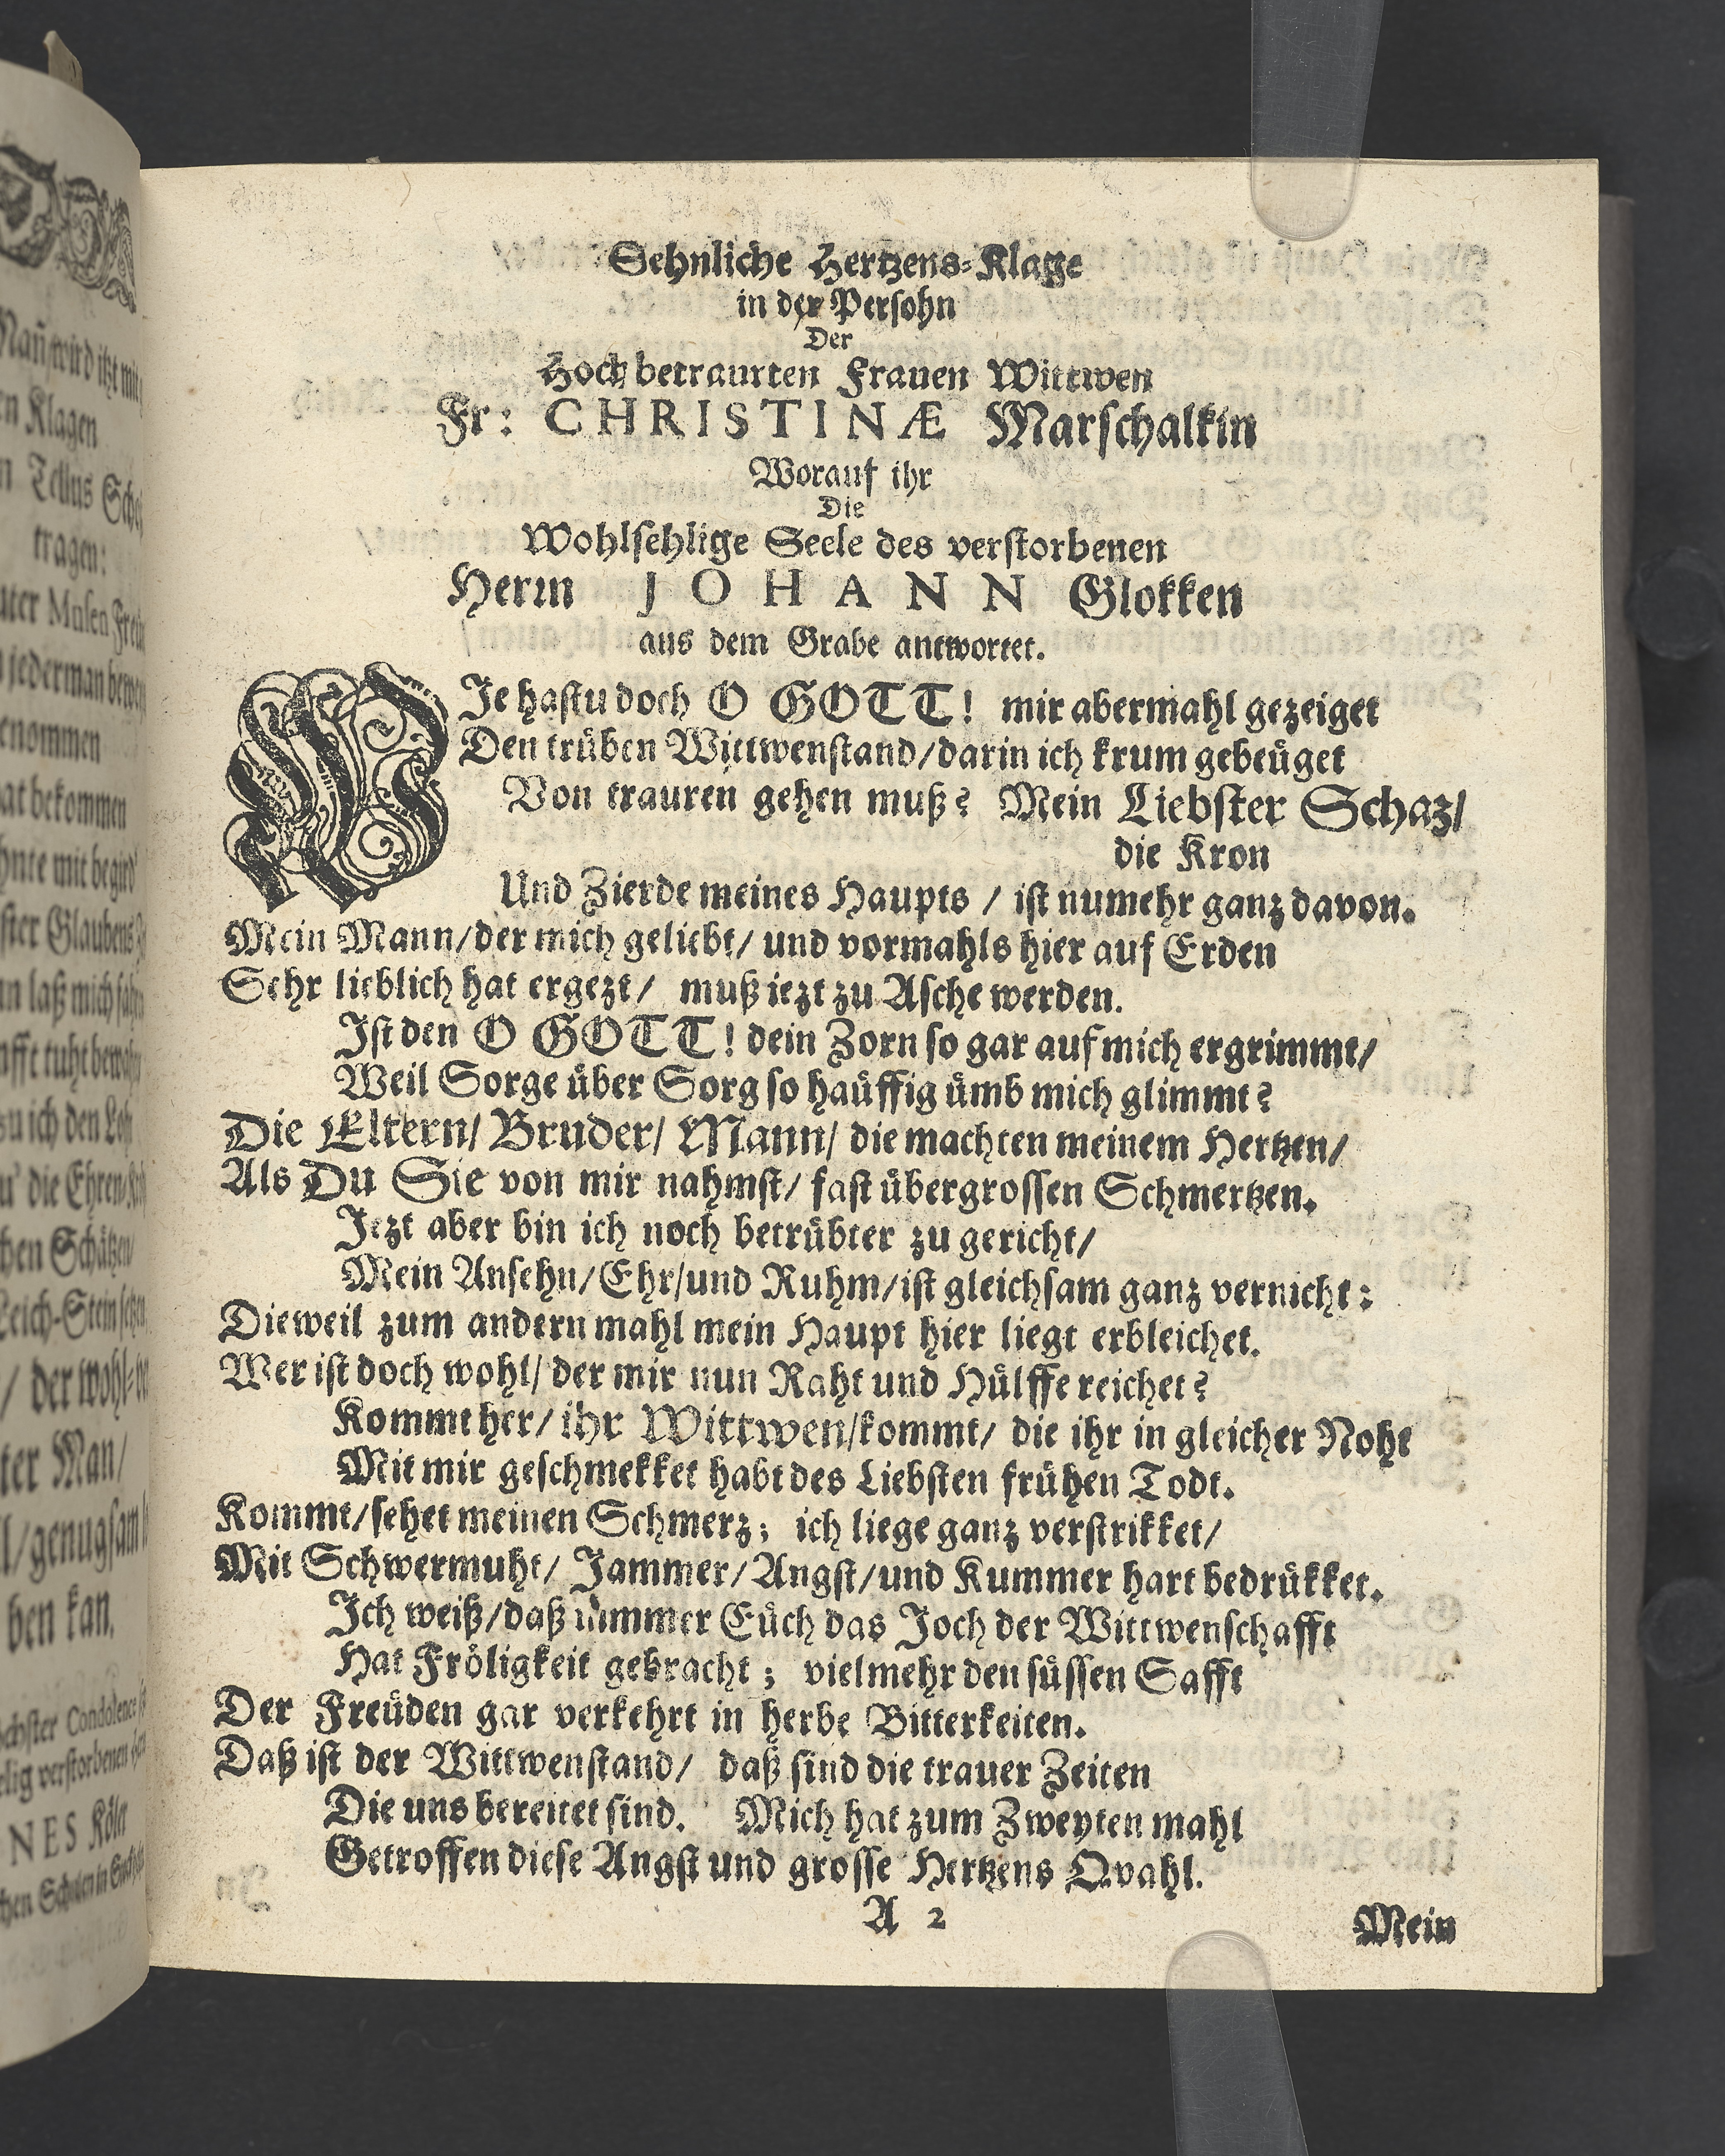 Sehnliche Hertzens-Klage
in der Persohn
Der
Hochbetraurten Frauen Wittwen
Fr: CHRISTINÆ Marschalkin
Worauf ihr
Die
Wohlsehlige Seele des verstorbenen
Herrn JOHANN Glokken
aus dem Grabe antwortet.
WJe hastu doch O GOTT! mir abermahl gezeiget
Den trüben Wittwenstand/darin ich krum gebeüget
Von trauren gehen muß? Mein Liebster Schaz/
die Kron
Und Zierde meines Haupts / ist numehr ganz davon.
Mein Mann/der mich geliebt/ und vormahls hier auf Erden
Sehr lieblich hat ergezt/ muß iezt zu Asche werden.
Ist den O GOTT! dein Zorn so gar auf mich ergrimmt/
Weil Sorge über Sorg so haüffig ümb mich glimmt?
Die Eltern/ Bruder/ Mann/ die machten meinem Hertzen/
Als Du Sie von mir nahmst/ fast übergrossen Schmertzen.
Jezt aber bin ich noch betrübter zu gericht/
Mein Ansehn/Ehr/und Ruhm/ist gleichsam ganz vernicht:
Dieweil zum andern mahl mein Haupt hier liegt erbleichet.
Wer ist doch wohl/ der mir nun Raht und Hülffe reichet?
Kommt her/ ihr Wittwen/kommt/ die ihr in gleicher Noht
Mit mir geschmekket habt des Liebsten frühen Todt.
Kommt/sehet meinen Schmerz; ich liege ganz verstrikket/
Mit Schwermuht/ Jammer/Angst/und Kummer hart bedrükket.
Ich weiß/daß nimmer Eüch das Joch der Wittwenschafft
Hat Fröligkeit gebracht; vielmehr den süssen Safft
Der Freüden gar verkehrt in herbe Bitterkeiten.
Daß ist der Wittwenstand/ daß sind die trauer Zeiten
Die uns bereitet sind. Mich hat zum Zweyten mahl
Getroffen diese Angst und grosse Hertzens Qvahl.
A 2
Mein